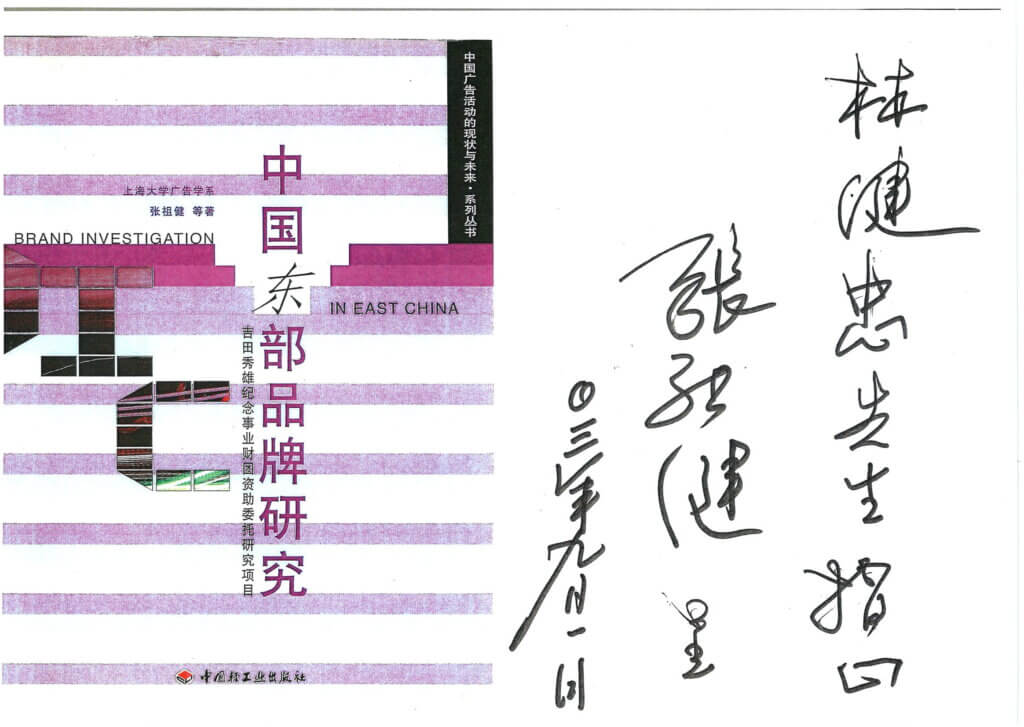 中国广告活动的现状与未来·系列丛书
上海大学广告学系
张祖健 等著
BRAND INVESTIGATION
IN EAST CHINA
中国东部品牌研究
吉田秀雄纪念事业财团资助委托研究项目
中国轻工业出版社
林健忠先生 指正
張祖健 呈
〇三年九月一日